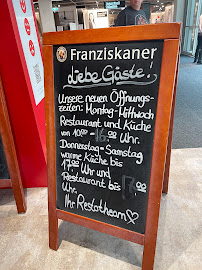 Franziskaner
Liebe Gäste!
Unsere neuen Öffnungs-
zeiten: Montag-Mittwoch
Restaurant und Küche
von 10:00 - 16:00 Uhr.
Donnerstag-Samstag
warme Küche bis
17:00 Uhr und
Restaurant bis 17:00
Uhr.
Ihr Restoteam